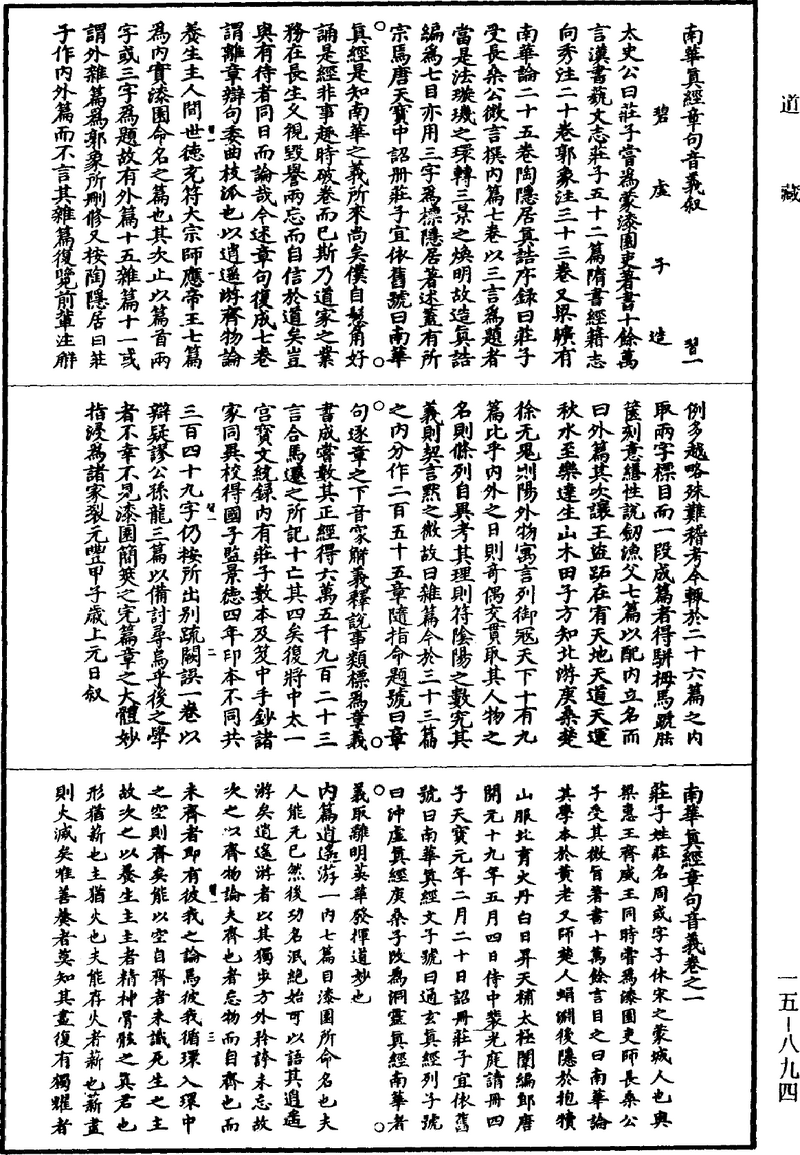 道藏
南華眞經章句音義叙
碧虛子造 習一
太史公曰莊子嘗爲蒙漆園吏著書十餘萬
言漢書蓺文志莊子五十二篇隋書經籍志
向秀注二十卷郭象注三十三卷又梁曠有
南華論二十五卷陶隱居眞誥序録曰莊子
受長桑公微言撰內篇七卷以三言爲題者
當是法璇璣之環轉三景之煥明故造眞誥
編爲七目亦用三字爲標隱居著述蓋有所
宗焉唐天寶中詔册莊子宜依舊號曰南華
眞經是知南華之義所來尚矣僕自髫角好
誦是經非事趍時破卷而已斯乃道家之業
務在長生乆視毀譽兩忘而自信於道矣豈
與有待者同日而論哉今述章句復成七卷
謂離章辯句委曲枝派也以逍遥游齊物論
養生主人間世德充符大宗師應帝王七篇
爲內實漆園命名之篇也其次止以篇首兩
字或三字爲題故有外篇十五雜篇十一或
謂外雜篇爲郭象所刪修又按陶隱居曰莊
子作內外篇而不言其雜篇復覽前軰注解
例多越略殊難稽考今輙於二十六篇之內
取兩字標目而一段成篇者得駢拇馬蹄胠
篋刻意繕性說劒漁父七篇以配內立名而
曰外篇其次讓王盜跖在宥天地天道天運
秋水至樂達生山木田子方知北游庚桑楚
徐无鬼則陽外物寓言列御冦天下十有九
篇比乎內外之目則奇偶交貫取其人物之
名則條列自異考其理則符陰陽之數究其
義則契言黙之微故曰雜篇今於三十三篇
之內分作二百五十五章隨指命題號曰章
句逐章之下音字解義釋說事類標爲章義
書成嘗數其正經得六萬五千九百二十三
言合馬遷之所記十亡其四矣復將中太一
宮寳文統録內有莊子數本及笈中手鈔諸
家同異校得國子監景德四年印本不同共
三百四十九字仍按所出別疏闕誤一卷以
辯疑謬公孫龍三篇以備討尋烏乎後之學
者不幸不見漆園簡筴之完篇章之大體妙
指浸爲諸家裂元豐甲子歲上元日叙
南華眞經章句音義卷之一
莊子姓莊名周或字子休宋之蒙城人也與
梁惠王齊威王同時嘗爲漆園吏師長桑公
子受其微旨著書十萬餘言目之曰南華論
其學本於黃老又師楚人蜎淵後隱於抱犢
山服北育火丹白日昇天補太極闈編郎唐
開元十九年五月四日侍中裴光庭請册四
子天寶元年二月二十日詔册莊子宜依舊
號曰南華眞經文子號曰通玄眞經列子號
曰沖虛眞經庚桑子改爲洞靈眞經南華者
義取離明英華發揮道妙也
內篇逍遥游一內七篇目漆園所命名也夫
人能无已然後功名泯絶始可以語其逍遥
游矣逍遥游者以其獨步方外矜誇未忘故
次之以齊物論夫齊也者忘物而自齊也而
未齊者即有彼我之論焉彼我循環入環中
之空則齊矣能以空自齊者未識死生之主
故次之以養生主主者精神骨骸之眞君也
形猶薪也主猶火也夫能存火者薪也薪盡
則火滅矣唯善養者莫知其盡復有獨耀者
一五－八九四